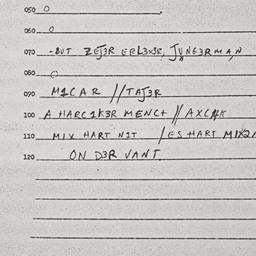 050 0
060 0
070 -BUT ZEJ3R ERL3X3R, JUNG3RMAN
080 0
090 M1CAR // TAJ3R
100 A HARC1K3R MENCT // AXCHK
110 MIX HART N1T / ES HART MIX2/
120 ON D3R VANT.